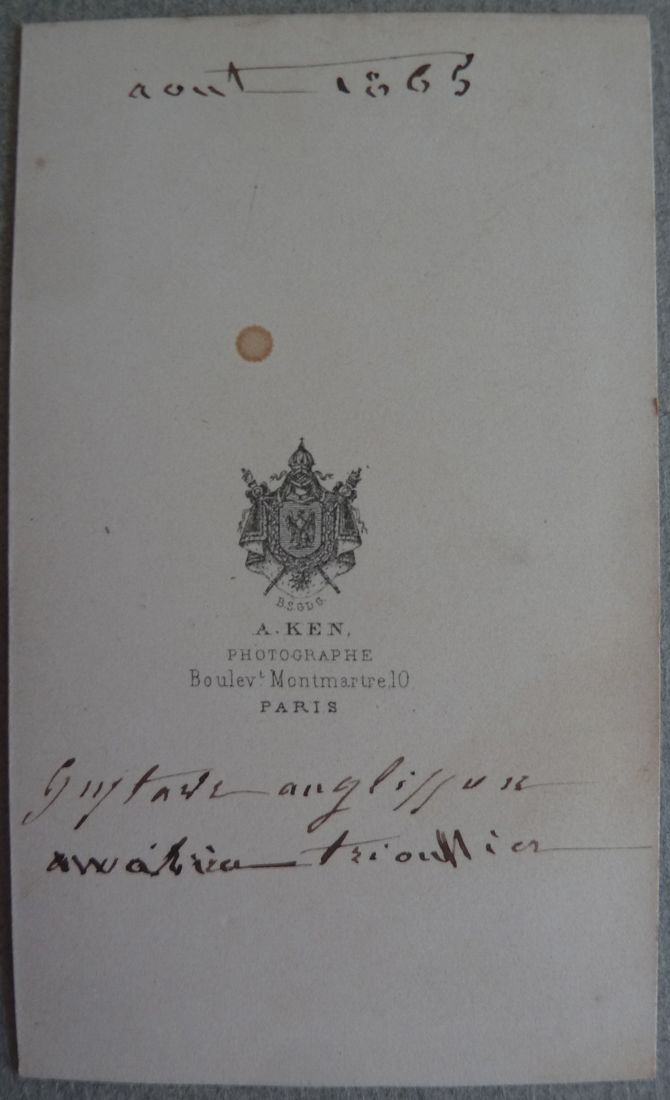 aout 1865
B.S.G.D.G.
A. KEN,
PHOTOGRAPHE
Boulevt. Montmartre, 10
PARIS
Gustave anglissure
trioullier